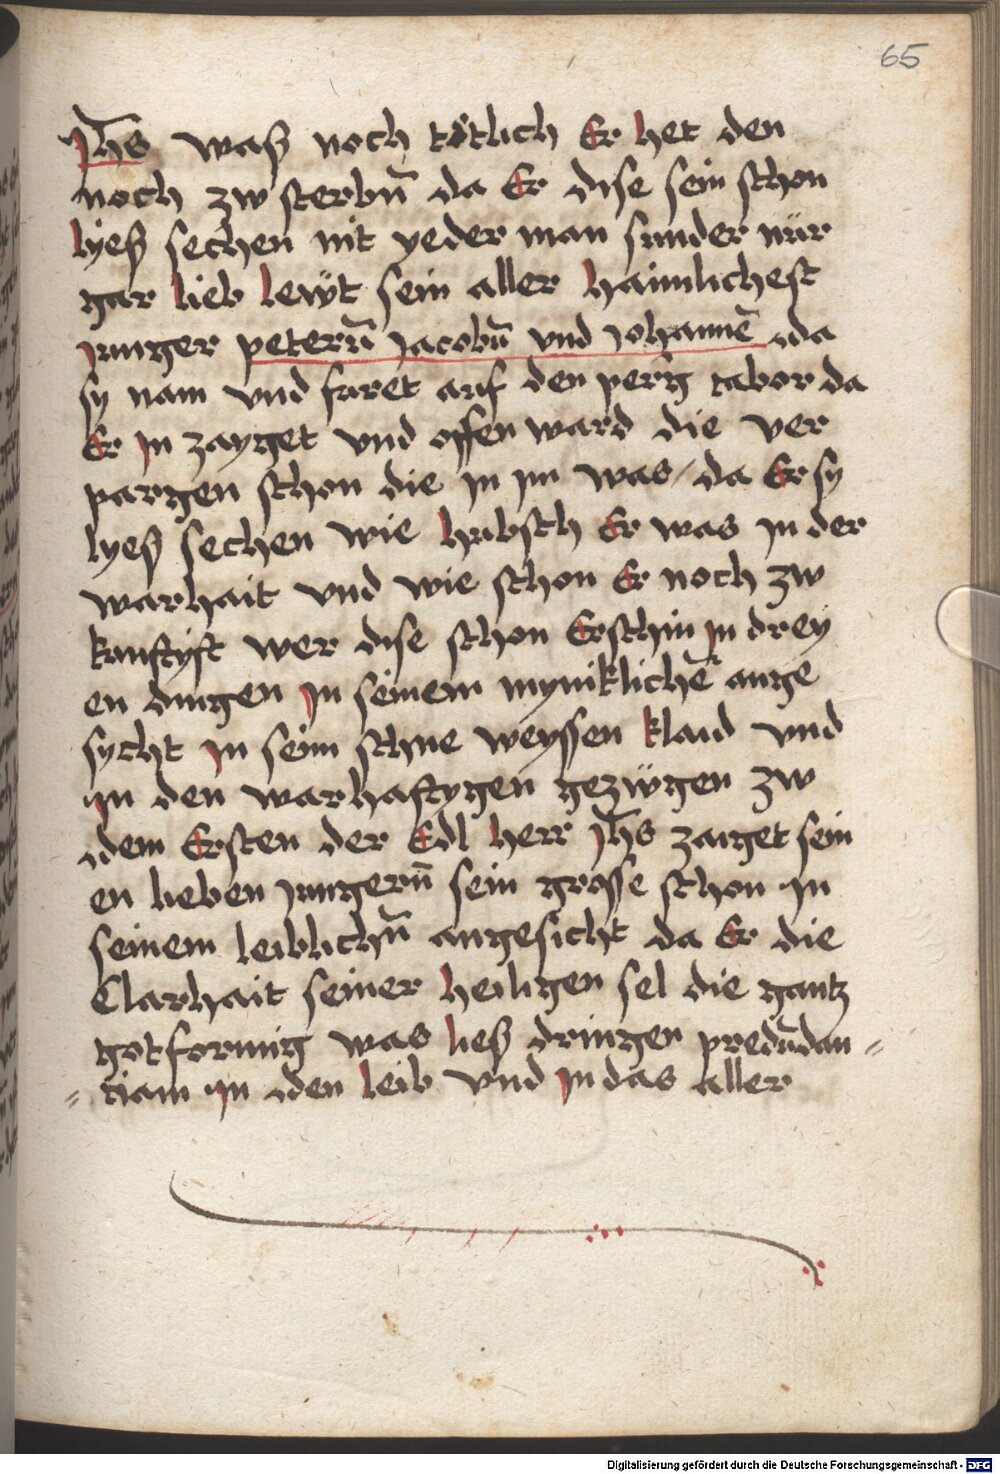 65
Jhs waß noch tötlich Er het den
noch zw sterbn̄ da Er dise sein schon
lyeß sechen nit yeder man sunder nür
gar lieb lewt sein aller haimlichest
junger peterū jacobū vnd johannē da
sy nam vnd füret auf den perg tabor da
Er in zayget vnd offen ward die ver
pargen schon die in im was / da Er sy
lyeß sechen wie hubsch Er was in der
warhait vnd wie schon Er noch zw
kunftyft wer dise schon Erschin in drey
en dingen in seinem myniklichē ange
sycht in seim schne weyssen klaid vnd
in den warhaftygen gezwgen zw
dem Ersten der Edl herr Jhs zaiget sein
en lieben jungern̄ sein grosse schon in
seinem leiblichn̄ angesicht da Er die
Clarhait seiner heiligen sel die gantz
gotformig was ließ dringen predūdan =
= ciam in den leib vnd in das aller
Digitalisierung gefördert durch die Deutsche Forschungsgemeinschaft - DFG